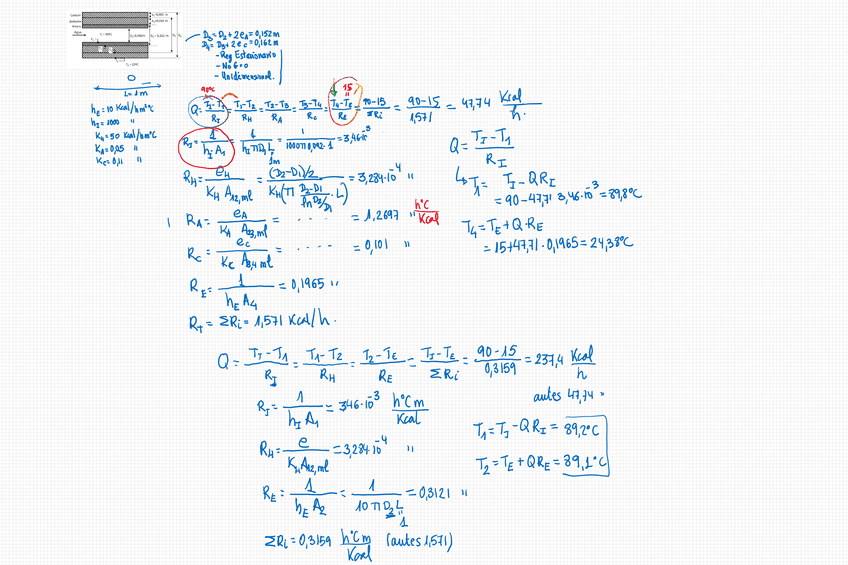 D₃ = D₂ + 2e_A = 0,152 m
D₄ = D₃ + 2e_C = 0,162 m
- Reg Estacionario
- No G=0
- Unidimensional.
L= 1 m
h_E = 10 Kcal/hm²°C
h_I = 1000 "
K_H = 50 Kcal/hm°C
K_A = 0,05 "
K_C = 0,11 "
90°C
15
Q = (T_I - T_1)/R_I = (T_1 - T_2)/R_H = (T_2 - T_3)/R_A = (T_3 - T_4)/R_C = (T_4 - T_E)/R_E = (90 - 15)/ΣRi = (90 - 15)/1,571 = 47,74 Kcal/h.
R_I = 1/(h_I·A_1) = 1/(h_I π D_1 L) = 1/(1000 π 0,092 · 1) = 3,46·10⁻³
1m
R_H = e_H/(K_H A_12,ml) = ((D_2 - D_1)/2)/(K_H(π (D_2 - D_1)/(ln D_2/D_1) · L)) = 3,284·10⁻⁴ "
R_A = e_A/(K_A A_23,ml) = ..... = 1,2697 " h°C/Kcal
R_C = e_C/(K_C A_3,4 ml) = .... = 0,101 "
R_E = 1/(h_E A_4) = 0,1965 "
R_T = ΣRi = 1,571 Kcal/h.
Q = (T_I - T_1)/R_I
↳ T_1 = T_I - Q R_I
= 90 - 47,71 · 3,46·10⁻³ = 89,8°C
T_4 = T_E + Q·R_E
= 15 + 47,71 · 0,1965 = 24,38°C
Q = (T_I - T_1)/R_I = (T_1 - T_2)/R_H = (T_2 - T_E)/R_E = (T_I - T_E)/ΣRi = (90 - 15)/0,3159 = 237,4 Kcal/h
antes 47,74 "
R_I = 1/(h_I A_1) = 3,46·10⁻³ h°C m/Kcal
R_H = e/(K_H A_12,ml) = 3,284·10⁻⁴ "
R_E = 1/(h_E A_2) = 1/(10 π D_2 L) = 0,3121 "
1
ΣRi = 0,3159 h°C m/Kcal (antes 1,571)
T_1 = T_I - Q R_I = 89,2°C
T_2 = T_E + Q R_E = 89,1°C